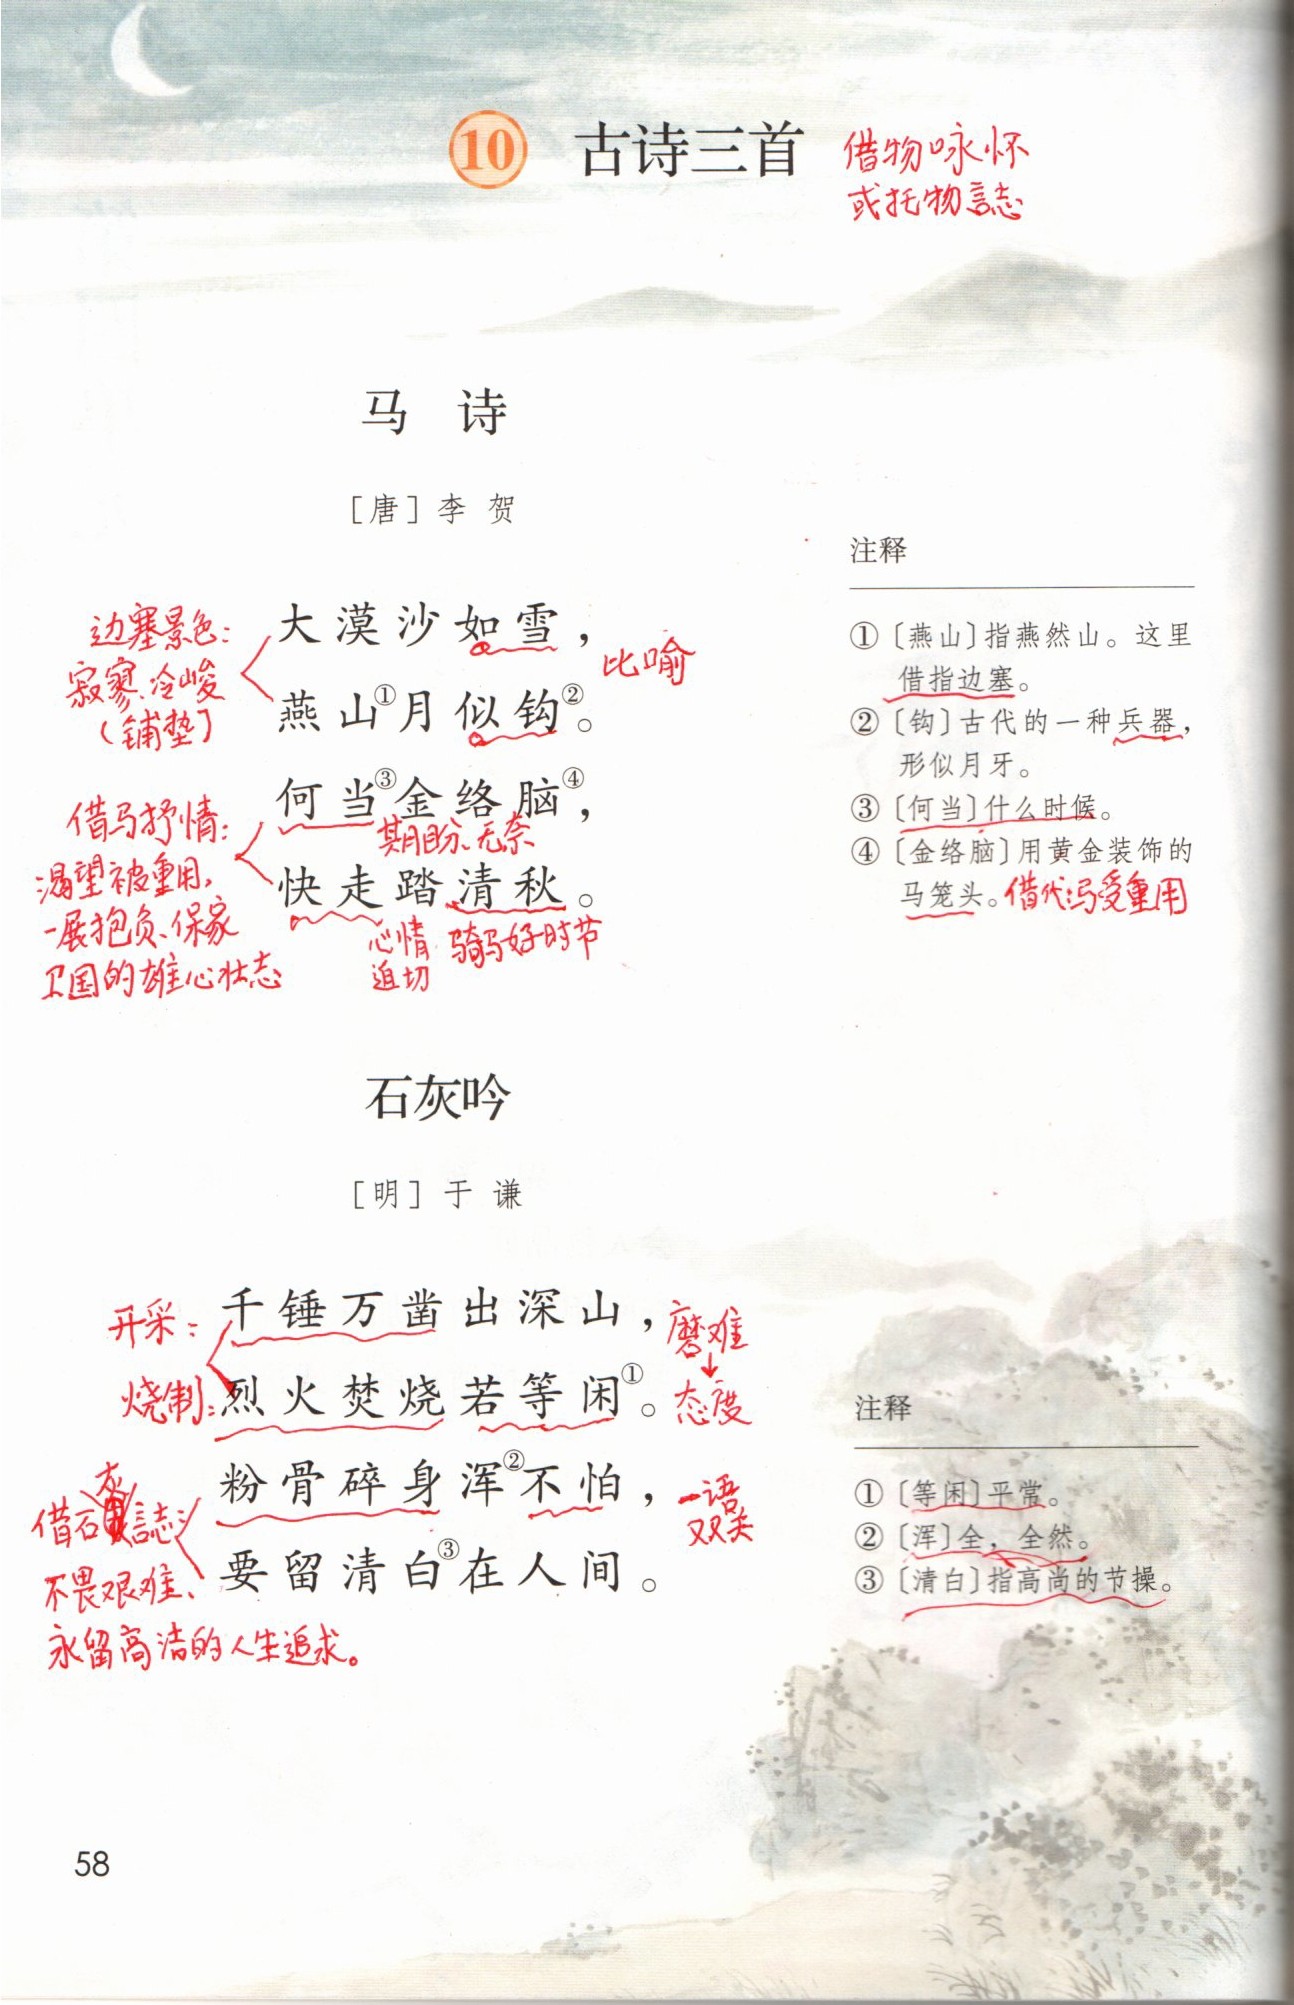 10 古诗三首
借物咏怀
或托物言志
马 诗
［唐］李 贺
大漠沙如雪，
燕山①月似钩②。
何当③金络脑④，
快走踏清秋。
边塞景色：
寂寥、冷峻
（铺垫）
比喻
借马抒情：
渴望被重用，
一展抱负、保家
卫国的雄心壮志
期盼、无奈
心情
迫切
骑马好时节
注释
①〔燕山〕指燕然山。这里
借指边塞。
②〔钩〕古代的一种兵器，
形似月牙。
③〔何当〕什么时候。
④〔金络脑〕用黄金装饰的
马笼头。借代写受重用
石灰吟
［明］于 谦
千锤万凿出深山，
烈火焚烧若等闲①。
粉骨碎身浑②不怕，
要留清白③在人间。
开采：
烧制：
磨难
↓
态度
借石灰言志：
不畏艰难、
永留高洁的人生追求。
一语
双关
注释
①〔等闲〕平常。
②〔浑〕全，全然。
③〔清白〕指高尚的节操。
58